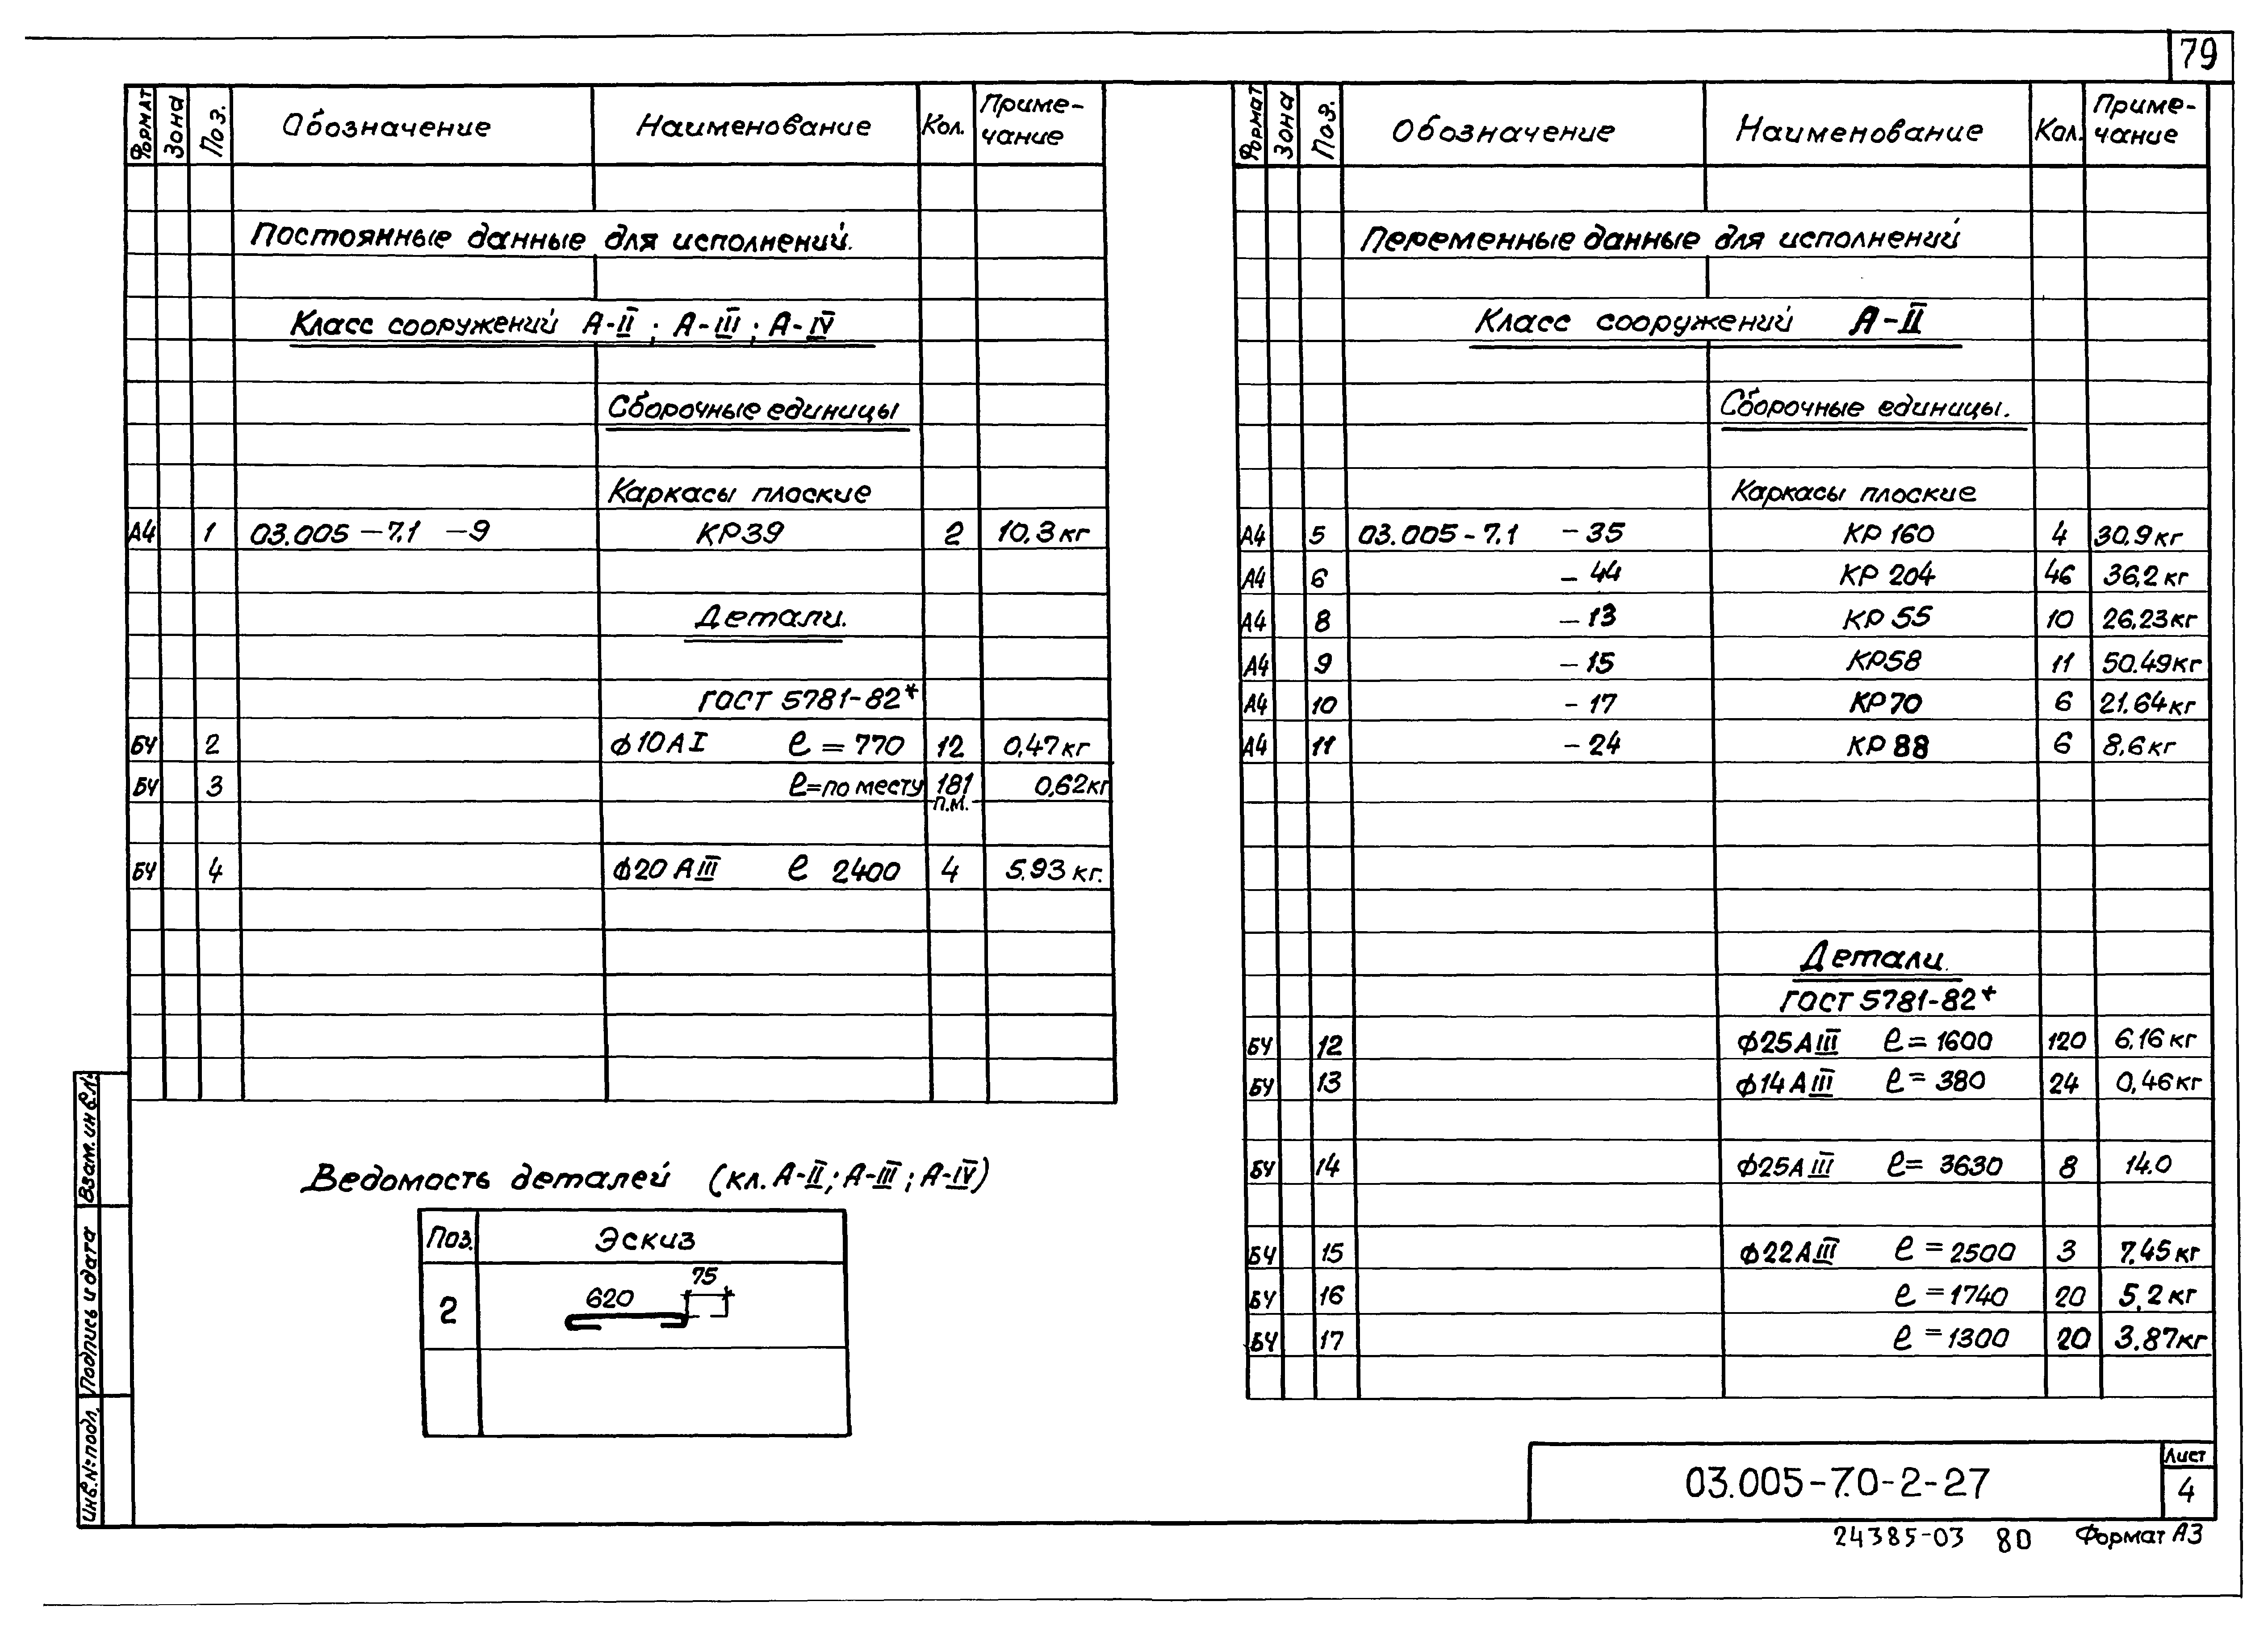 79
Формат Зона Поз. Обозначение Наименование Кол. Приме-
чание
Постоянные данные для исполнений.
Класс сооружений А-II; А-III; А-IV
Сборочные единицы
Каркасы плоские
А4 1 03.005-7.1 -9 КР39 2 10,3 кг
Детали.
ГОСТ 5781-82*
БЧ 2 ф10АI ℓ=770 12 0,47кг
БЧ 3 ℓ=по месту 181 0,62кг
п.м.
БЧ 4 ф20АIII ℓ 2400 4 5.93 кг.
Ведомость деталей (кл. А-II; А-III; А-IV)
Поз. Эскиз
75
620
2
Формат Зона Поз. Обозначение Наименование Кол. Приме-
чание
Переменные данные для исполнений
Класс сооружений А-II
Сборочные единицы.
Каркасы плоские
А4 5 03.005-7.1 -35 КР 160 4 30.9 кг
А4 6 -44 КР 204 46 36,2 кг
А4 8 -13 КР 55 10 26.23кг
А4 9 -15 КР58 11 50.49кг
А4 10 -17 КР70 6 21.64кг
А4 11 -24 КР 88 6 8,6 кг
Детали.
ГОСТ 5781-82*
БЧ 12 ф25АIII ℓ=1600 120 6,16 кг
БЧ 13 ф14АIII ℓ=380 24 0,46кг
БЧ 14 ф25АIII ℓ=3630 8 14.0
БЧ 15 ф22АIII ℓ=2500 3 7,45 кг
БЧ 16 ℓ=1740 20 5,2 кг
БЧ 17 ℓ=1300 20 3.87кг
Взам. инв.№
Подпись и дата
Инв.№подл.
03.005-7.0-2-27
Лист
4
24385-03 80 Формат А3